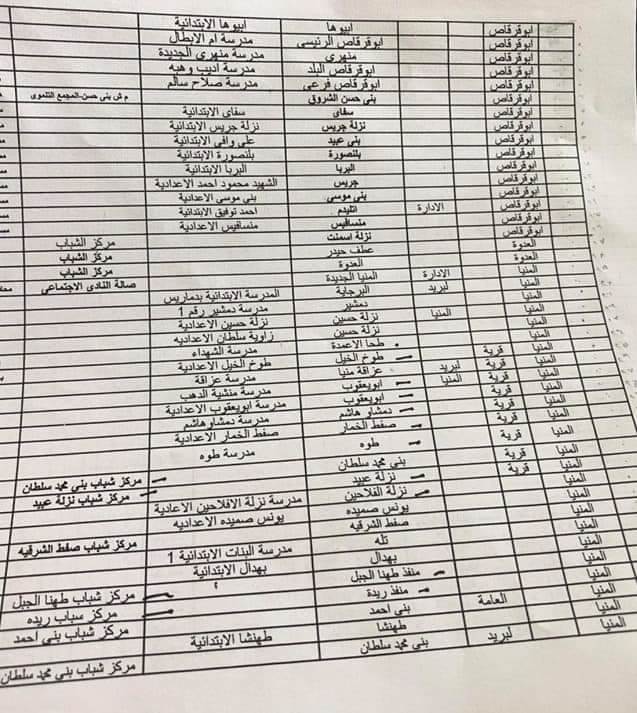 ابوقرقاص ابيوها ابيوها الابتدائية
ابوقرقاص ابوقرقاص الرئيسى مدرسة ام الابطال
ابوقرقاص منهرى مدرسة منهرى الجديدة
ابوقرقاص ابوقرقاص البلد مدرسة اديب وهبه
ابوقرقاص ابوقرقاص فرعى مدرسة صلاح سالم
ابوقرقاص بنى حسن الشروق م ش بنى حسن-المجمع التنموى
ابوقرقاص سفاى سفاى الابتدائية
ابوقرقاص نزلة جريس نزلة جريس الابتدائية
ابوقرقاص بنى عبيد على وافى الابتدائية
ابوقرقاص بلنصورة بلنصورة الابتدائية
ابوقرقاص البربا البربا الابتدائية
ابوقرقاص جريس الشهيد محمود احمد الاعدادية
ابوقرقاص بنى موسى بنى موسى الاعدادية
ابوقرقاص الادارة اتليدم احمد توفيق الابتدائية
ابوقرقاص منسافيس منسافيس الاعدادية
العدوة نزلة اسمنت مركز الشباب
العدوة عطف حيدر مركز الشباب
العدوة مركز الشباب
المنيا الادارة المنيا الجديدة صالة النادى الاجتماعى
المنيا لبريد البرجاية المدرسة الابتدائية بدماريس
المنيا دمشير مدرسة دمشير رقم 1
المنيا المنيا نزلة حسين نزلة حسين الاعدادية
المنيا نزلة حسين زاوية سلطان الاعدادية
المنيا قرية طحا الاعمدة مدرسة الشهداء
المنيا قرية طوخ الخيل طوخ الخيل الاعدادية
المنيا قرية لبريد عزاقة منيا مدرسة عزاقة
المنيا قرية المنيا ابويعقوب مدرسة منشية الدهب
المنيا قرية ابويعقوب مدرسة ابويعقوب الاعدادية
المنيا قرية دمشاو هاشم مدرسة دمشاو هاشم
المنيا قرية صفط الخمار صفط الخمار الاعدادية
المنيا قرية طوه مدرسة طوه
المنيا قرية بنى محمد سلطان مركز شباب بنى محمد سلطان
المنيا نزلة عبيد مركز شباب نزلة عبيد
المنيا نزلة الفلاحين مدرسة نزلة الافلاحين الاعادية
المنيا يونس صميده يونس صميده الاعداديه
المنيا صفط الشرقيه مركز شباب صفط الشرقيه
المنيا تله مدرسة البنات الابتدائية 1
المنيا بهدال بهدال الابتدائية
المنيا منفذ طهنا الجبل مركز شباب طهنا الجبل
المنيا منفذ ريدة مركز سباب ريده
المنيا العامة بنى احمد مركز شباب بنى احمد
المنيا طهنشا طهنشا الابتدائية
المنيا لبريد بنى محمد سلطان مركز شباب بنى محمد سلطان